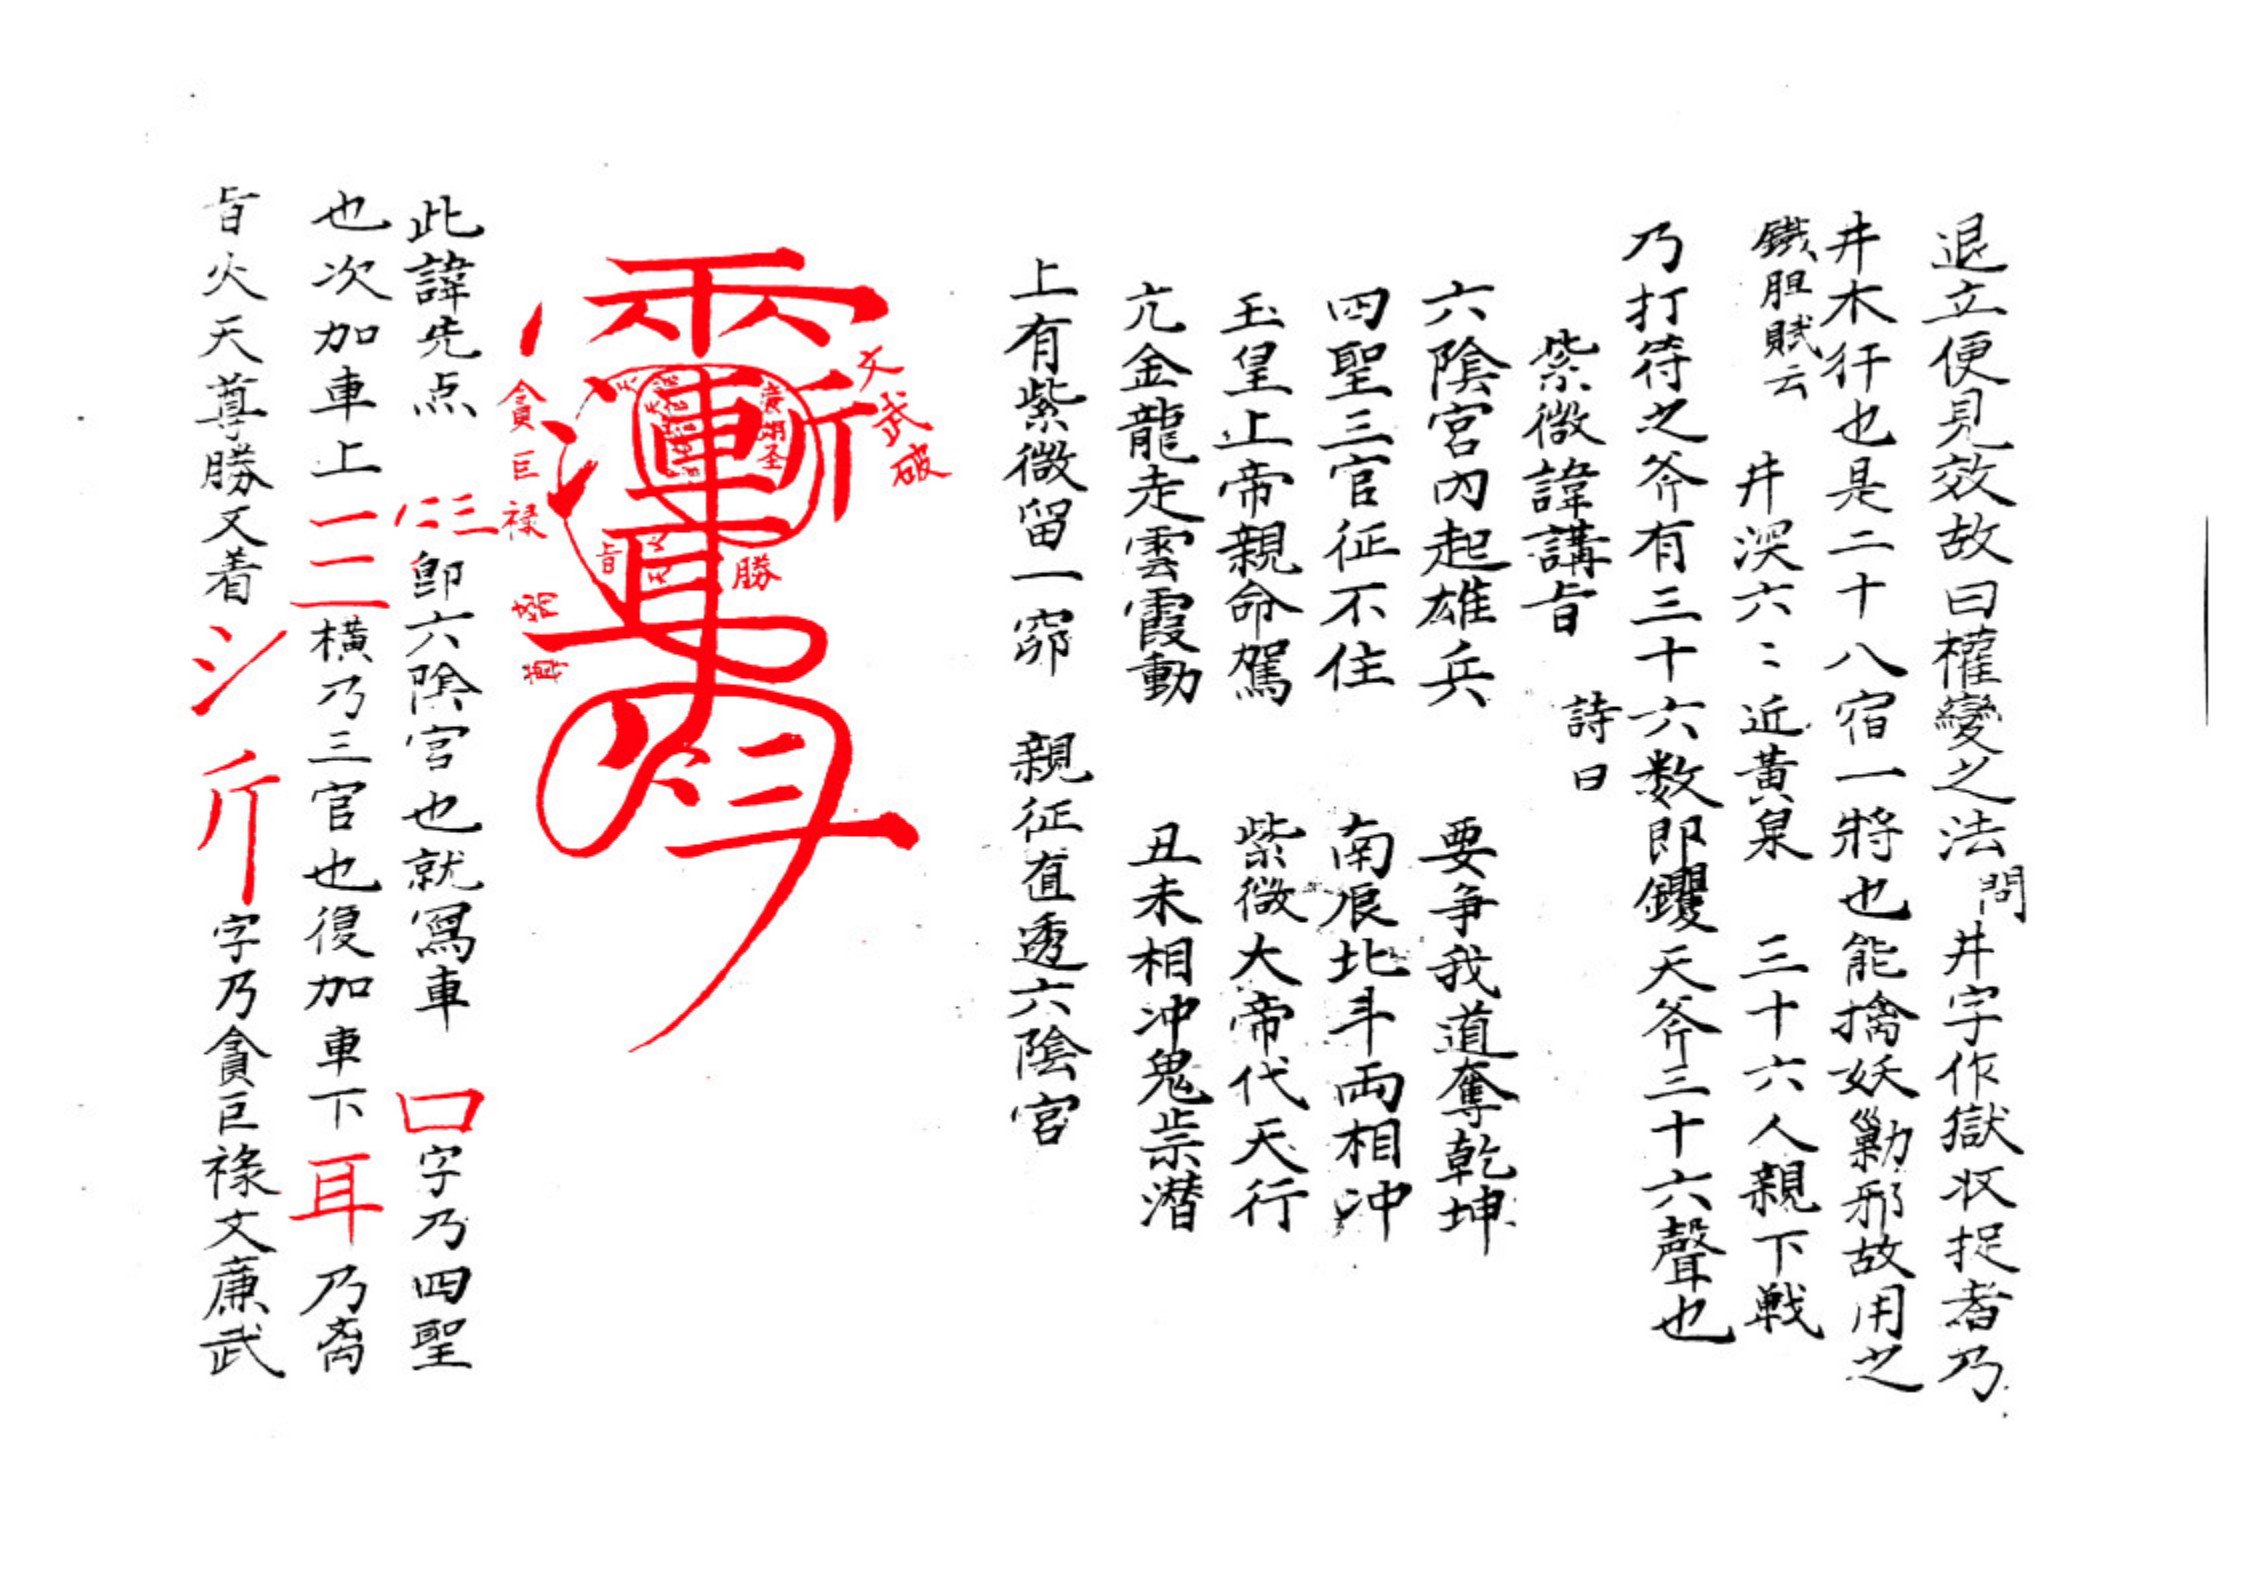 退立便見效故曰權變之法問井字作獄収捉者乃
井木犴也是二十八宿一將也能擒妖勦邪故用之
鐵胆賦云 井深六〻近黃泉 三十六人親下戦
乃打符之斧有三十六数即钁天斧三十六聲也
紫微諱講旨 詩曰
六陰宮內起雄兵 要爭我道奪乾坤
四聖三官征不住 南辰北斗両相冲
玉皇上帝親命駕 紫微大帝代天行
亢金龍走雲霞動 丑未相冲鬼祟潜
上有紫微留一窍 親征直透六陰宮
文武破
貪巨禄
勝
旨
此諱先点 仁三 卽六陰宮也就寫車 口 字乃四聖
也次加車上 一二 橫乃三官也後加車下 耳 乃
旨火天尊勝又着 氵 斤 字乃貪巨祿文廉武